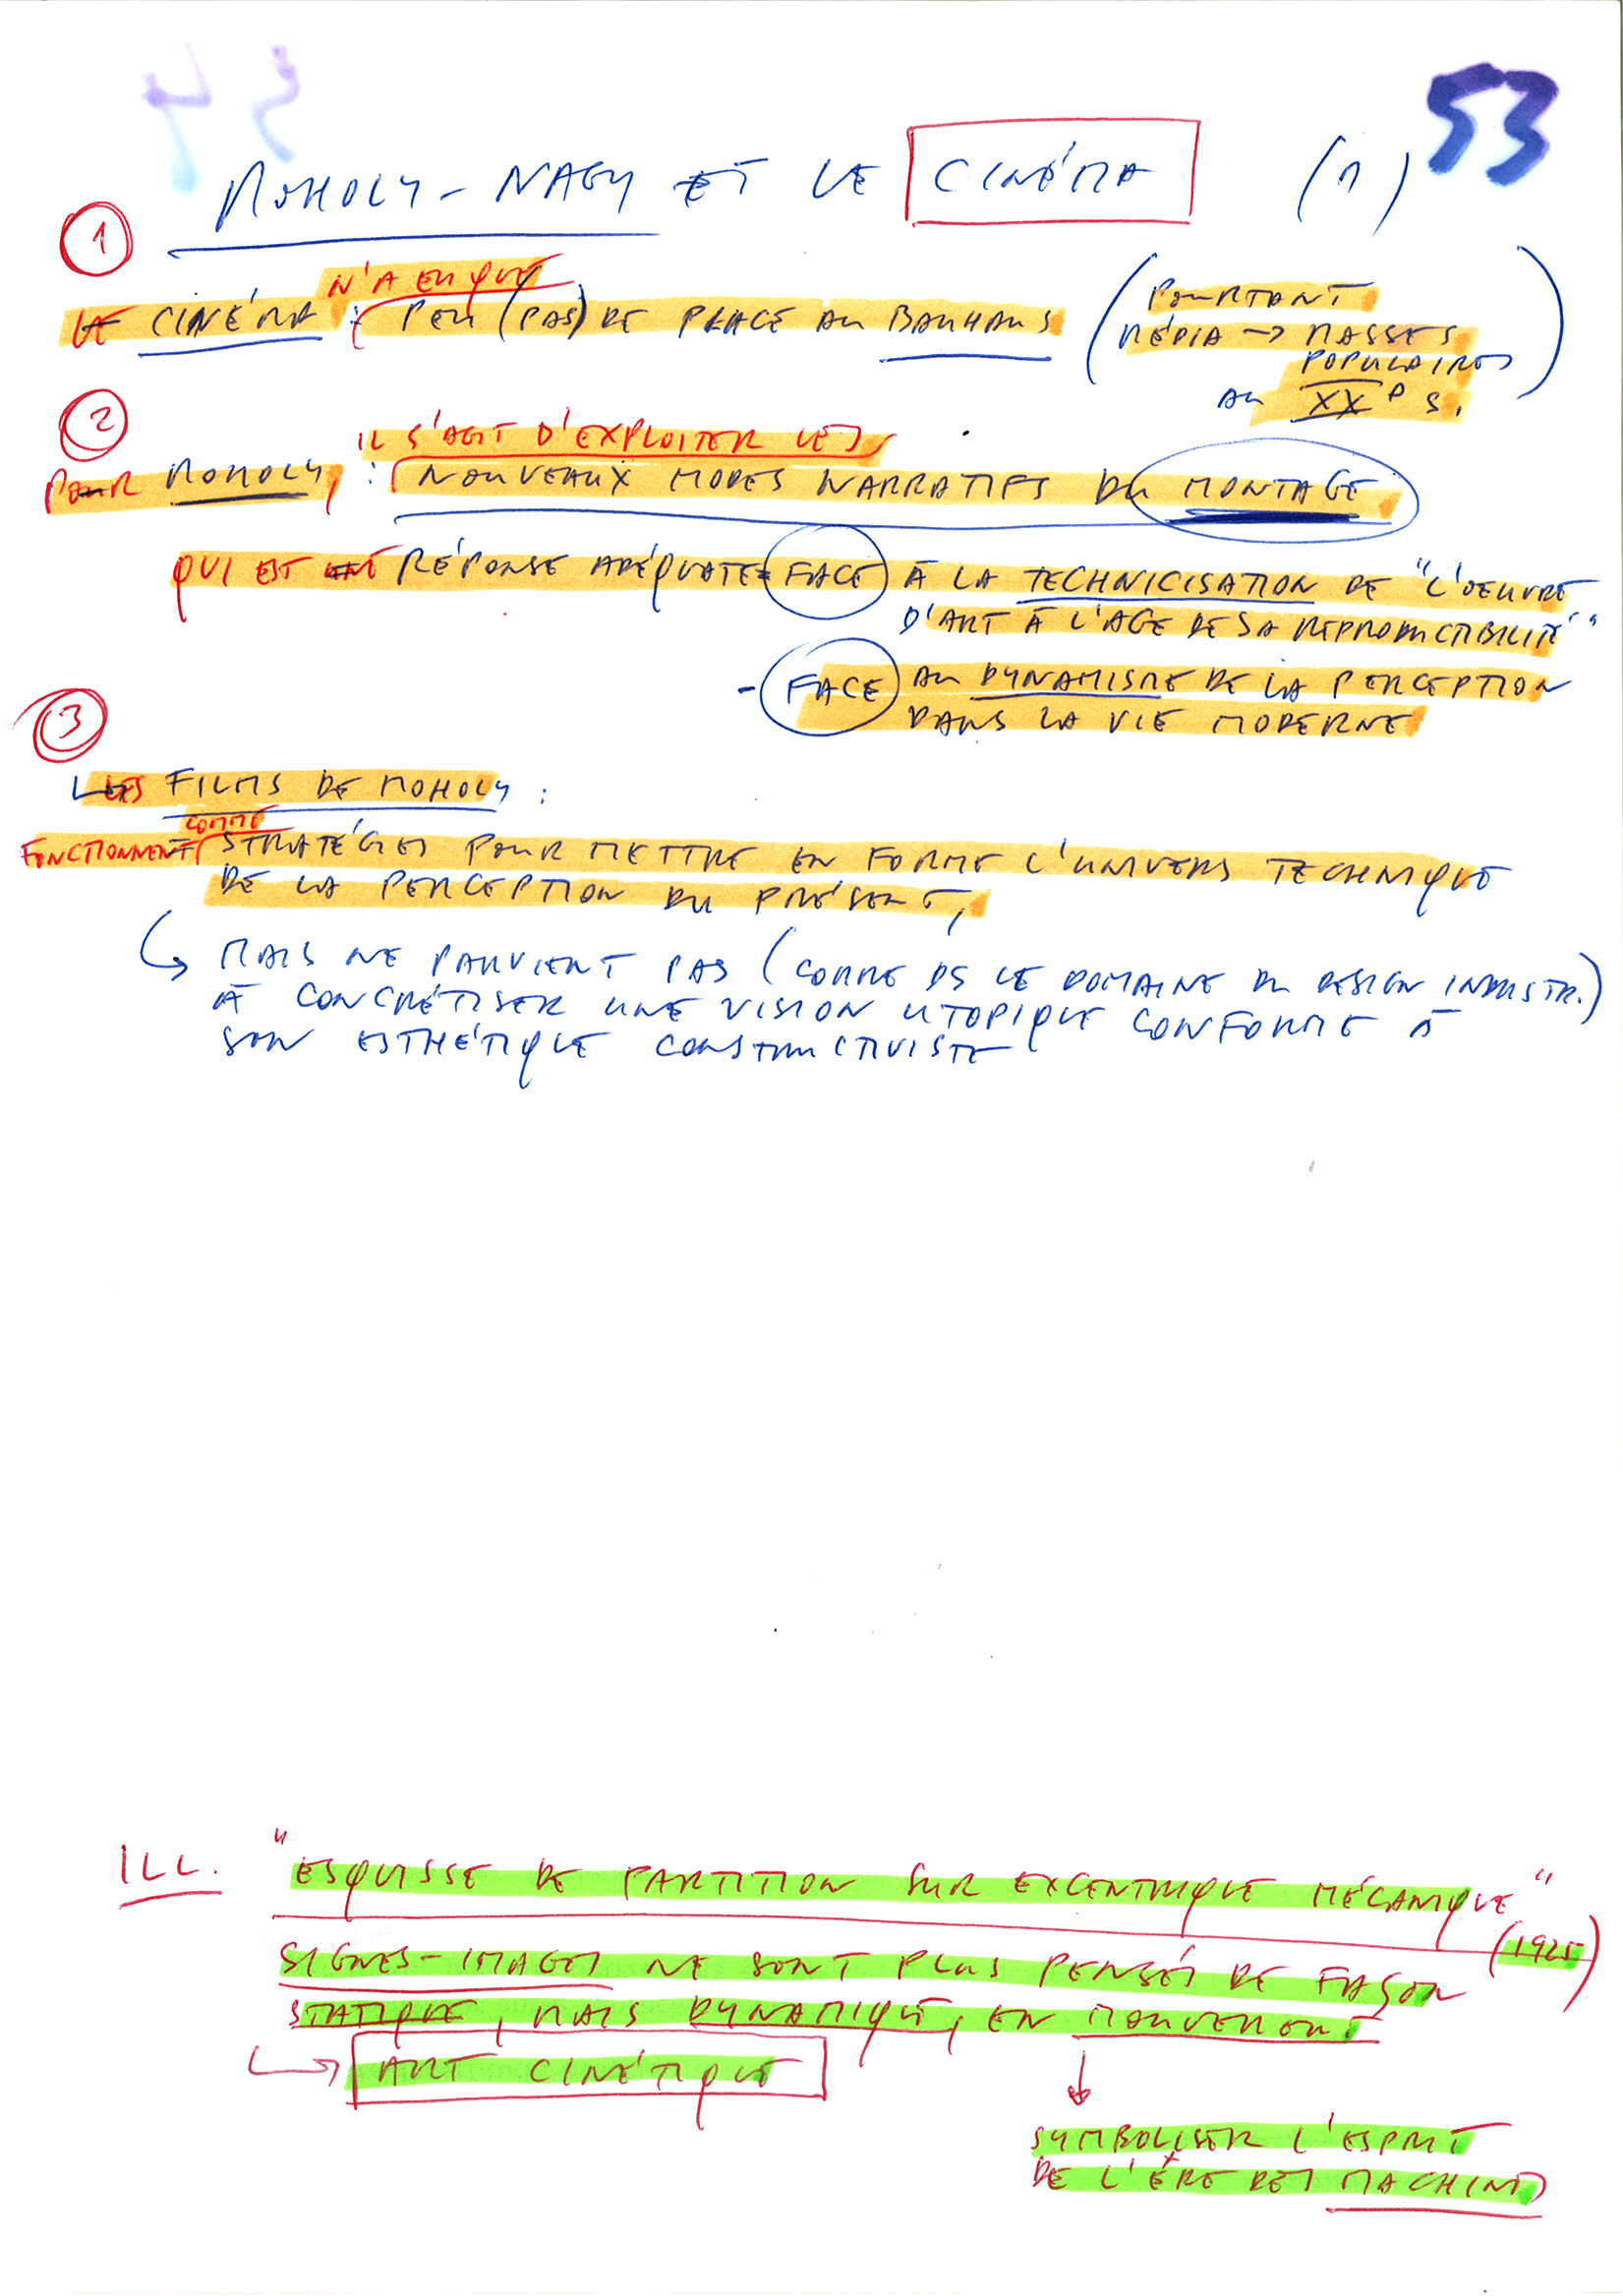 53
MOHOLY-NAGY ET LE CINÉMA (1)
1
N'A EU QUE
LE CINÉMA : PEU (PAS) DE PLACE AU BAUHAUS
(POURTANT
MÉDIA → MASSES
POPULAIRES
AU XXe S.)
2
IL S'AGIT D'EXPLOITER LES
POUR MOHOLY, : NOUVEAUX MODES NARRATIFS DU MONTAGE
QUI EST UNE RÉPONSE ADÉQUATE FACE À LA TECHNICISATION DE "L'OEUVRE
D'ART À L'AGE DE SA REPRODUCTIBILITÉ"
- FACE AU DYNAMISME DE LA PERCEPTION
DANS LA VIE MODERNE
3
LES FILMS DE MOHOLY :
COMME
FONCTIONNENT STRATÉGIES POUR METTRE EN FORME L'UNIVERS TECHNIQUE
DE LA PERCEPTION DU PRÉSENT,
↳ MAIS NE PARVIENT PAS (COMME DS LE DOMAINE DU DESIGN INDUSTR.)
À CONCRÉTISER UNE VISION UTOPIQUE CONFORME À
SON ESTHÉTIQUE CONSTRUCTIVISTE
ILL. "ESQUISSE DE PARTITION SUR EXCENTRIQUE MÉCANIQUE"
(1925)
SIGNES-IMAGES NE SONT PLUS PENSÉS DE FAÇON
STATIQUE, MAIS DYNAMIQUE, EN MOUVEMENT
↳ ART CINÉTIQUE
↓
SYMBOLISER L'ESPRIT
DE L'ÈRE DES MACHINES